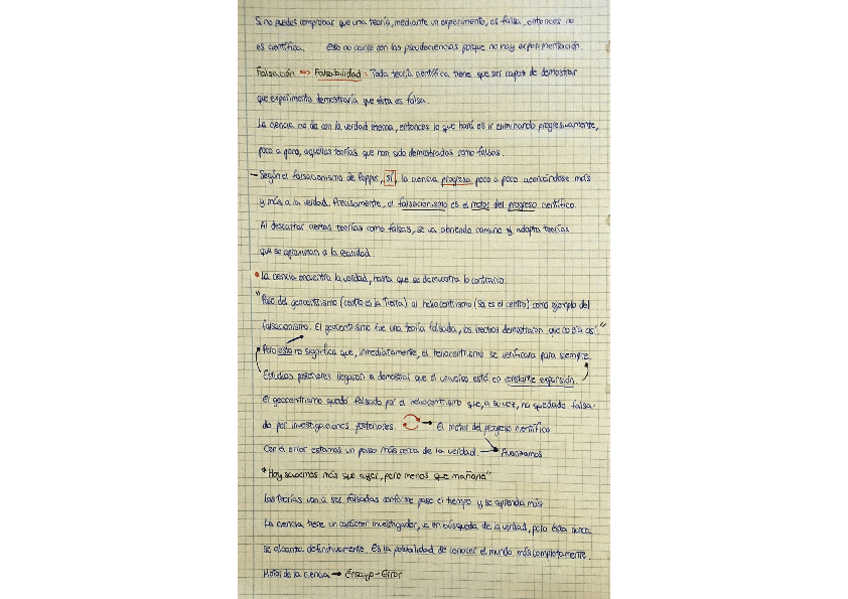 Si no puedes comprobar que una teoría, mediante un experimento, es falsa, entonces no
es científica. Esto no ocurre con las pseudociencias porque no hay experimentación.
Falsación ↔ Falsabilidad: Toda teoría científica tiene que ser capaz de demostrar
que experimento demostraría que ésta es falsa.
La ciencia no da con la verdad eterna, entonces lo que hará es ir eliminando progresivamente,
poco a poco, aquellas teorías que han sido demostradas como falsas.
- Según el falsacionismo de Popper, SÍ, la ciencia progresa poco a poco acercándose más
y más a la verdad. Precisamente, el falsacionismo es el motor del progreso científico.
Al descartar ciertas teorías como falsas, se va abriendo camino y adapta teorías
que se aproximan a la realidad.
• La ciencia encuentra la verdad, hasta que se demuestra lo contrario.
"Paso del geocentrismo (centro es la Tierra) al heliocentrismo (Sol es el centro) como ejemplo del
falsacionismo. El geocentrismo fue una teoría falsada, los hechos demostraron que no era así."
Pero esto no significa que, inmediatamente, el heliocentrismo se verificara para siempre.
Estudios posteriores llegaron a demostrar que el universo está en constante expansión.
El geocentrismo quedó falsado por el heliocentrismo que, a su vez, ha quedado falsa-
do por investigaciones posteriores. → El motor del progreso científico
Con el error estamos un paso más cerca de la verdad. → Avanzamos
"Hoy sabemos más que ayer, pero menos que mañana"
Las teorías van a ser falsadas conforme pase el tiempo y se aprenda más
La ciencia tiene un carácter investigador, va en búsqueda de la verdad, pero ésta nunca
se alcanza definitivamente. Es la posibilidad de conocer el mundo más completamente.
Motor de la ciencia → Ensayo-Error